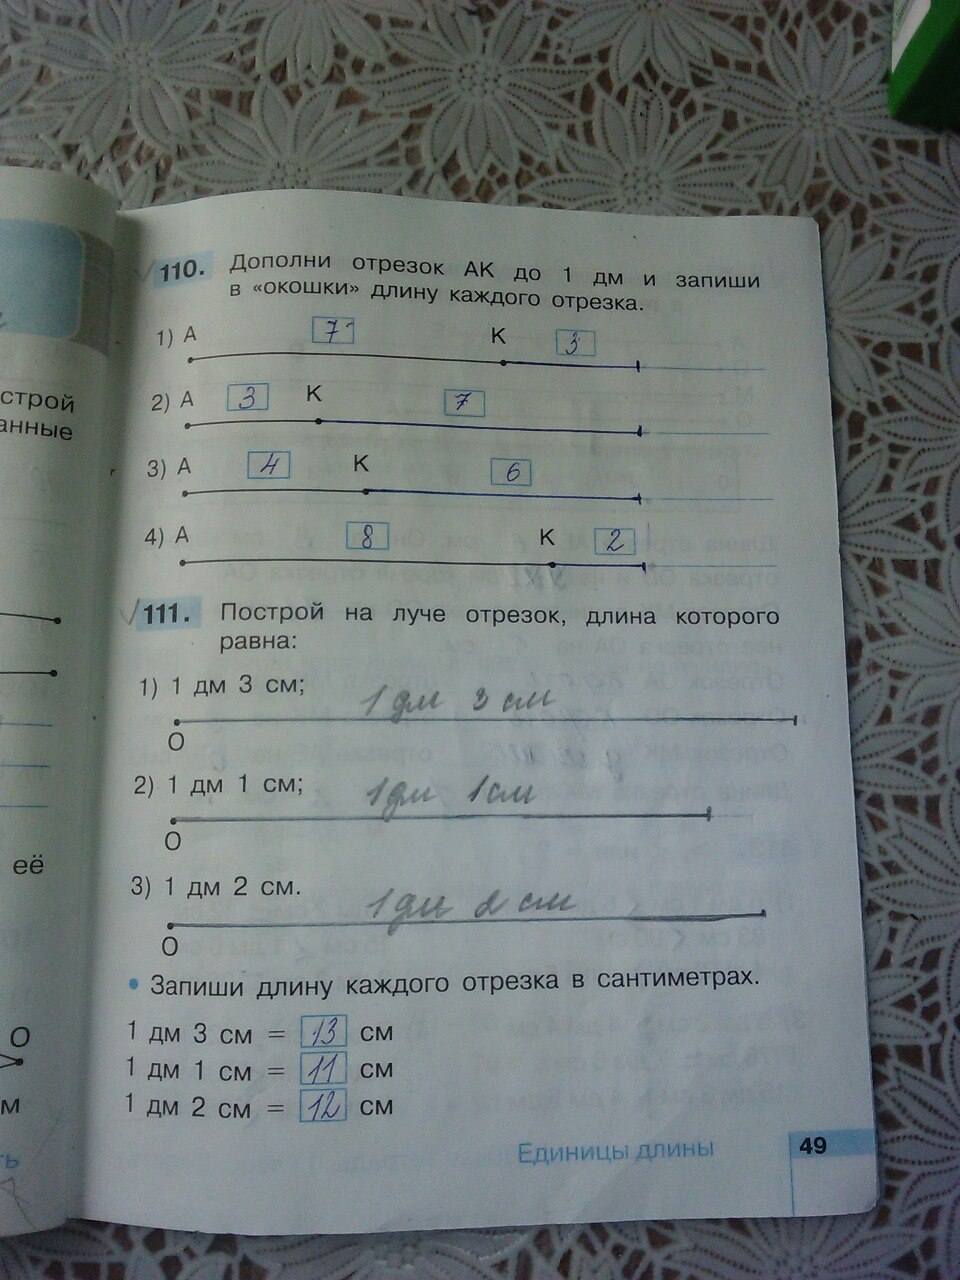 строй
анные
её
О
м
ть
110. Дополни отрезок АК до 1 дм и запиши
в «окошки» длину каждого отрезка.
1) А 7 К 3
2) А 3 К 7
3) А 4 К 6
4) А 8 К 2
111. Построй на луче отрезок, длина которого
равна:
1) 1 дм 3 см;
1 дм 3 см
О
2) 1 дм 1 см;
1 дм 1 см
О
3) 1 дм 2 см.
1 дм 2 см
О
• Запиши длину каждого отрезка в сантиметрах.
1 дм 3 см = 13 см
1 дм 1 см = 11 см
1 дм 2 см = 12 см
Единицы длины 49